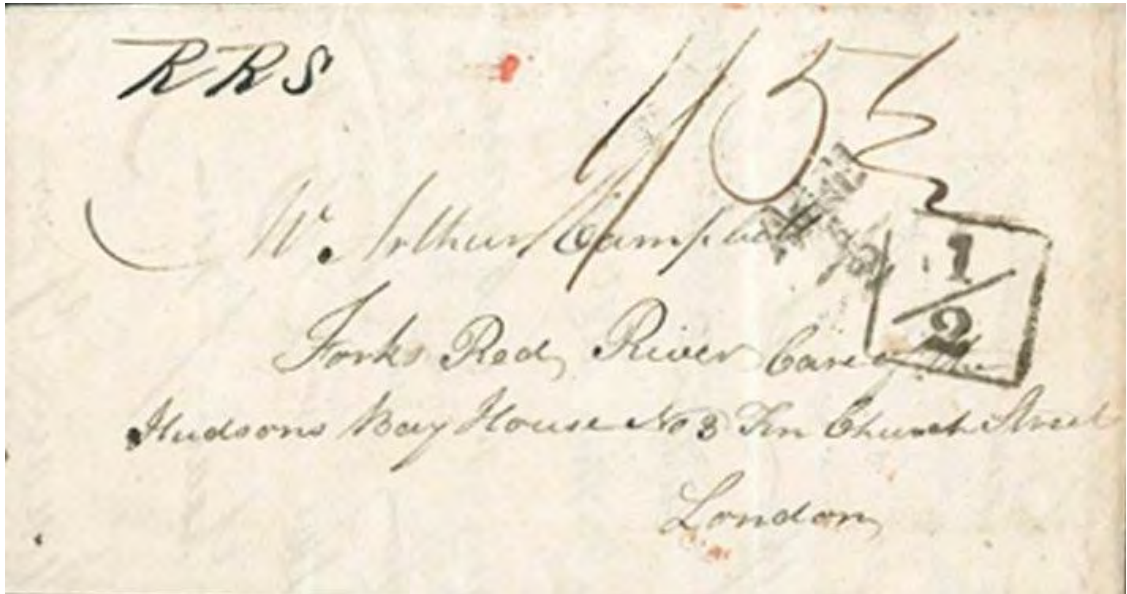 RRS
Mr. Arthur Campbell
Forks Red River Care of the
Hudsons Bay House No 3 Fen Church Street
London
1
2